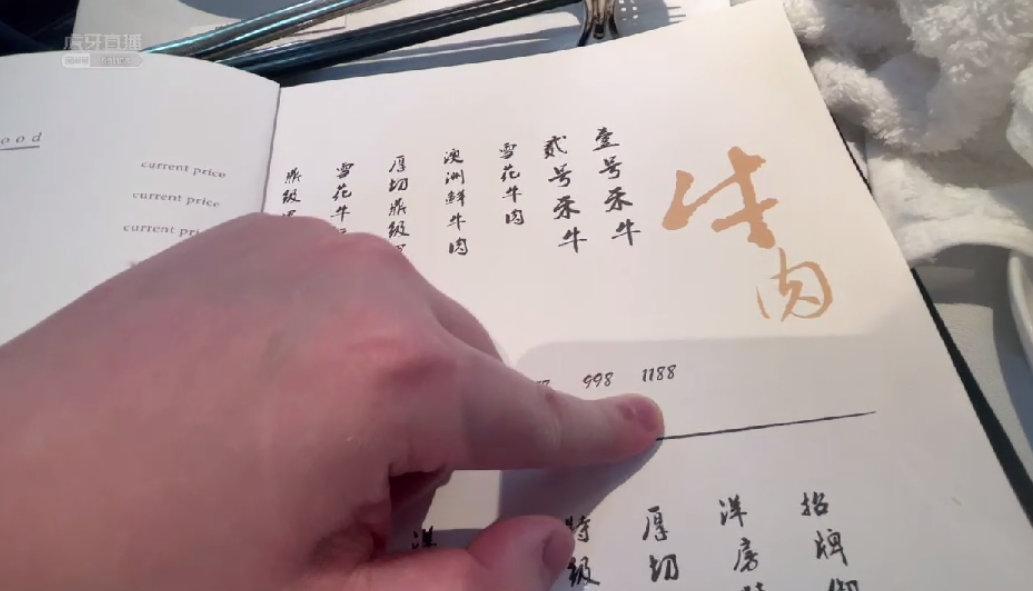 虎牙直播
ood
current price
current price
牛肉
壹号禾牛
贰号禾牛
雪花牛肉
澳洲鲜牛肉
厚切鼎级
雪花牛
鼎级
998 1188
招牌
洋房
厚切
特级
洋